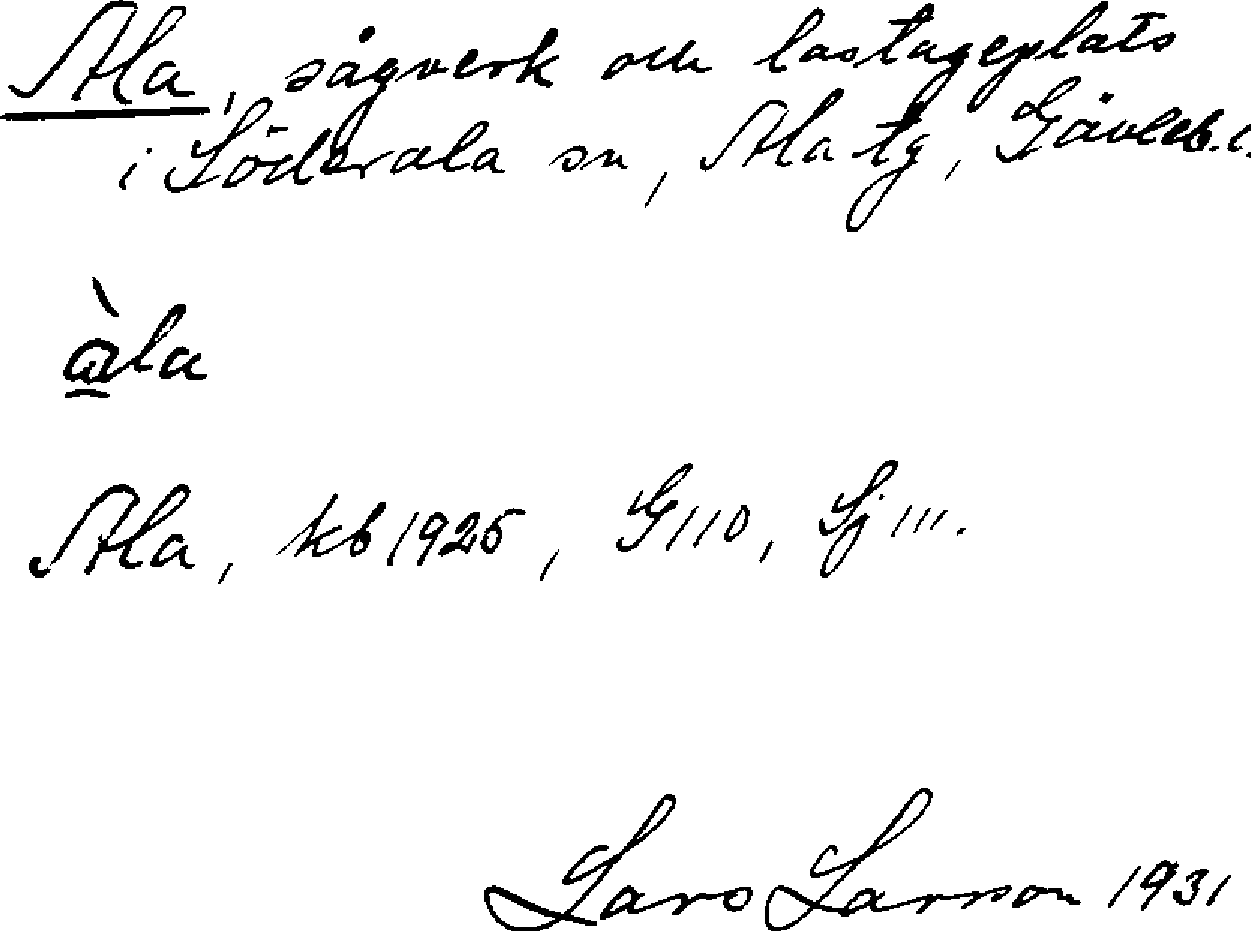 Ala, sågverk och lastageplats
i Söderala sn, Ala tg, Gävleb. l.
àla
Ala, kb 1925, G 110, Sj III.
Lars Larsson 1931